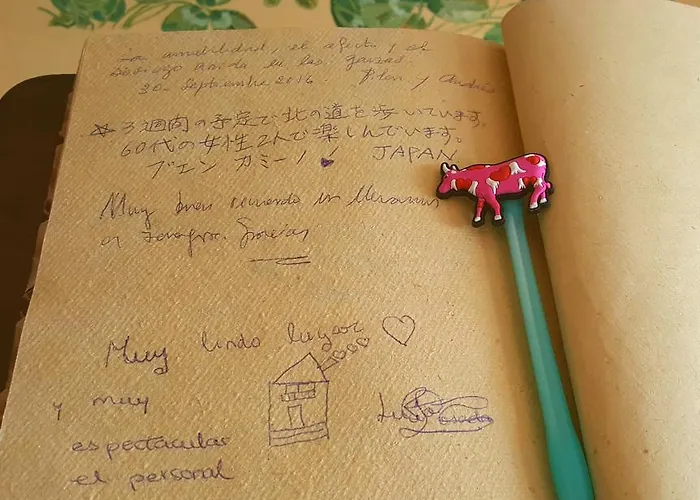 La amabilidad, el afecto y el
20 - Septiembre 2016. Pilar y
3週間の予定で北の道を歩いています。
60代の女性2人で楽しんでいます。
ブエン カミーノ! JAPAN
Muy buen recuerdo
Zaragoza. Gracias
Muy lindo lugar
y muy
espectacular
el personal